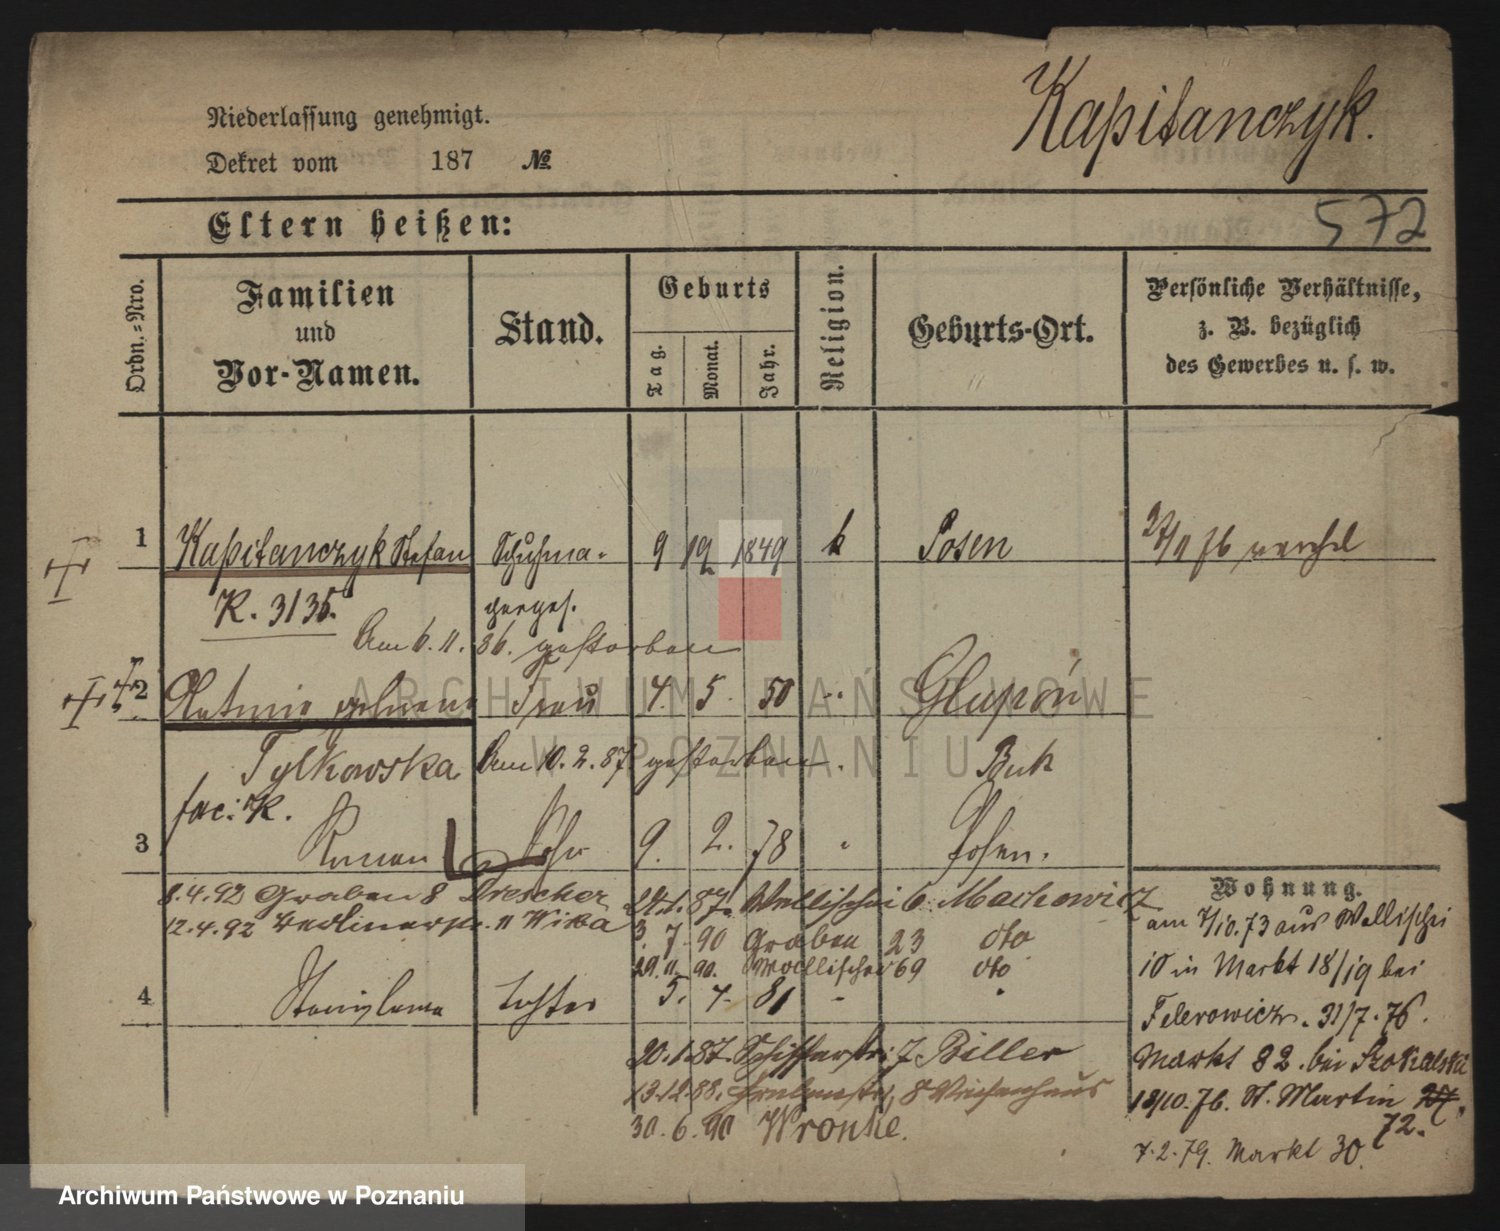 Kapitanczyk.
Niederlassung genehmigt.
Dekret vom 187 №
Eltern heißen:
572
Ordn.=Nro.
Familien
und
Vor-Namen.
Stand.
Geburts
Tag.
Monat.
Jahr.
Religion.
Geburts-Ort.
Persönliche Verhältnisse,
z. B. bezüglich
des Gewerbes u. s. w.
1 Kapitanczyk Stefan Schuhma- 9 12 1849 k Posen
K. 3135.herges.
Am 6. 11. 86. gestorben
2 Antonie geborene Frau 4. 5. 50 Glupoń
Tylkowska Am 10. 2. 87 gestorben. Buk
fac: K.
3 Roman Sohn 9. 2. 78 " Posen.
8.4.92 Graben 8 Drescher 87. Wallischei 6 Machowicz
12.4.92 Berlinerstr. 11 Wika 3. 7. 90 Graben 23 dto
29. 11. 90. Wallischei 69 dto
4 Stanislawa Tochter 5. 4. 81 "
20. 1. 87. Schifferstr. 7 Biller
13.12.88. 8 Waisenhaus
30. 6. 90 Wronke.
Wohnung.
am 7/10. 73 aus Wallischei
10 in Markt 18/19 bei
31/7. 76.
Markt 82. bei
18/10. 76. St. Martin 27.
72.
7. 2. 79. Markt 30.
ARCHIWUM PAŃSTWOWE
W POZNANIU
Archiwum Państwowe w Poznaniu